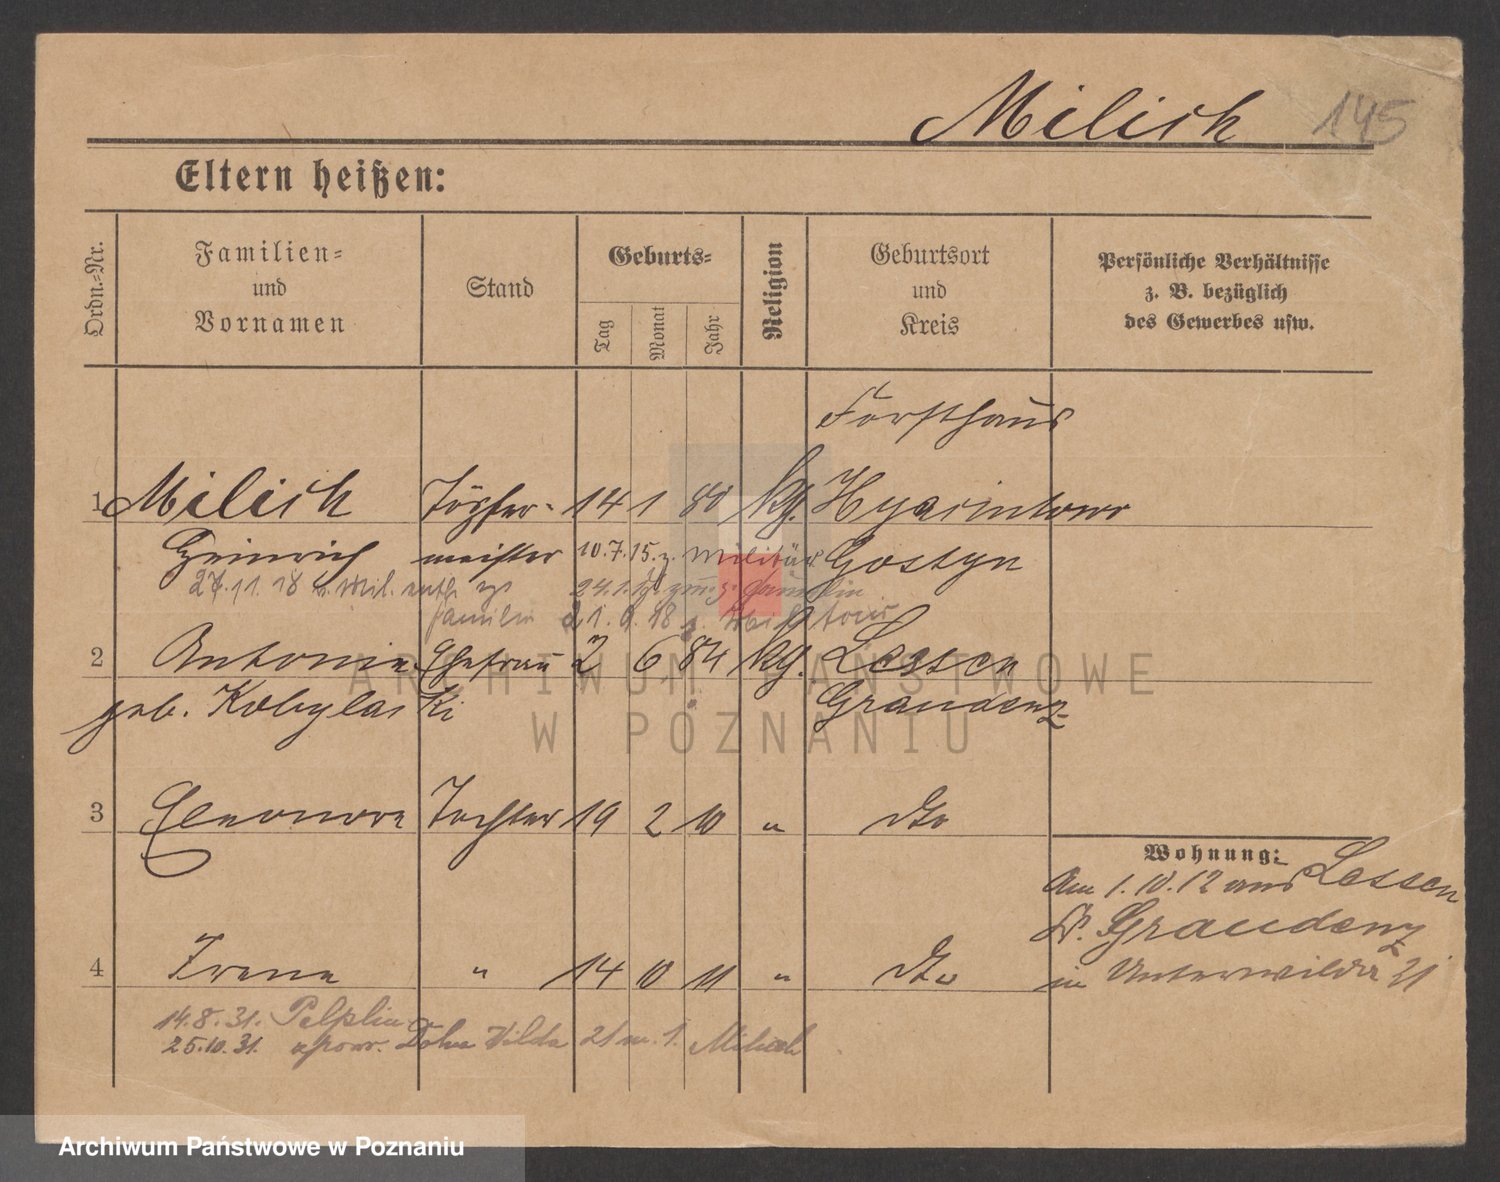 Milich 145
Eltern heißen:
Ordn.-Nr.
Familien-
und
Vornamen
Stand
Geburts-
Tag
Monat
Jahr
Religion
Geburtsort
und
Kreis
Persönliche Verhältnisse
z. B. bezüglich
des Gewerbes usw.
Forsthaus
1 Milich Töpfer- 14 1 80 kg. Hyacintowo
Heinrich meister 10.7.15. z. Militär Gostyn
27.11.18 v. Mil. 24.1.
Familie 21.9.18 z.
2 Antonie Ehefrau 2 6 84 kg. Lessen
geb. Kobylaski Graudenz
3 Eleonora Tochter 19 2 10 " dto
4 Irene " 14 10 11 " dto
Wohnung:
Am 1.10.12 aus Lessen
Kr. Graudenz
in Unterwilda 21
14.8.31. Pelplin
25.10.31. Dolna Wilda 21 m. 1. Milich
ARCHIWUM PAŃSTWOWE
W POZNANIU
Archiwum Państwowe w Poznaniu